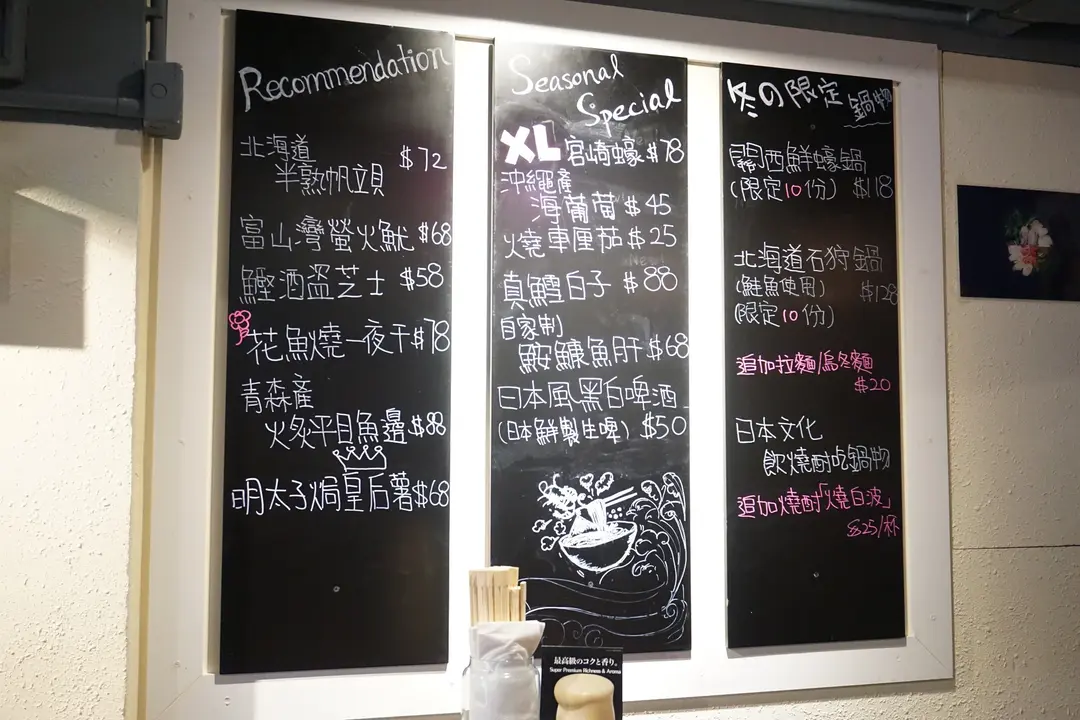 Recommendation
北海道
半熟帆立貝 $72
富山灣螢火魷 $68
鰹酒盃芝士 $58
花魚燒一夜干 $78
青森產
火炙平目魚邊 $88
明太子焗皇后薯 $68
Seasonal
Special
XL 宮崎蠔 $78
沖繩產
海葡萄 $45
燒車厘茄 $25
真鱈白子 $88
自家製
鮟鱇魚肝 $68
日本風黑白啤酒
(日本鮮製生啤) $50
冬の限定 鍋物
關西鮮蠔鍋
(限定10份) $118
北海道石狩鍋
(鮭魚使用) $128
(限定10份)
追加拉麵/烏冬麵
$20
日本文化
飲燒酎吃鍋物
追加燒酎「燒白波」
$25/杯
最高級のコクと香り。
Super Premium Richness & Aroma